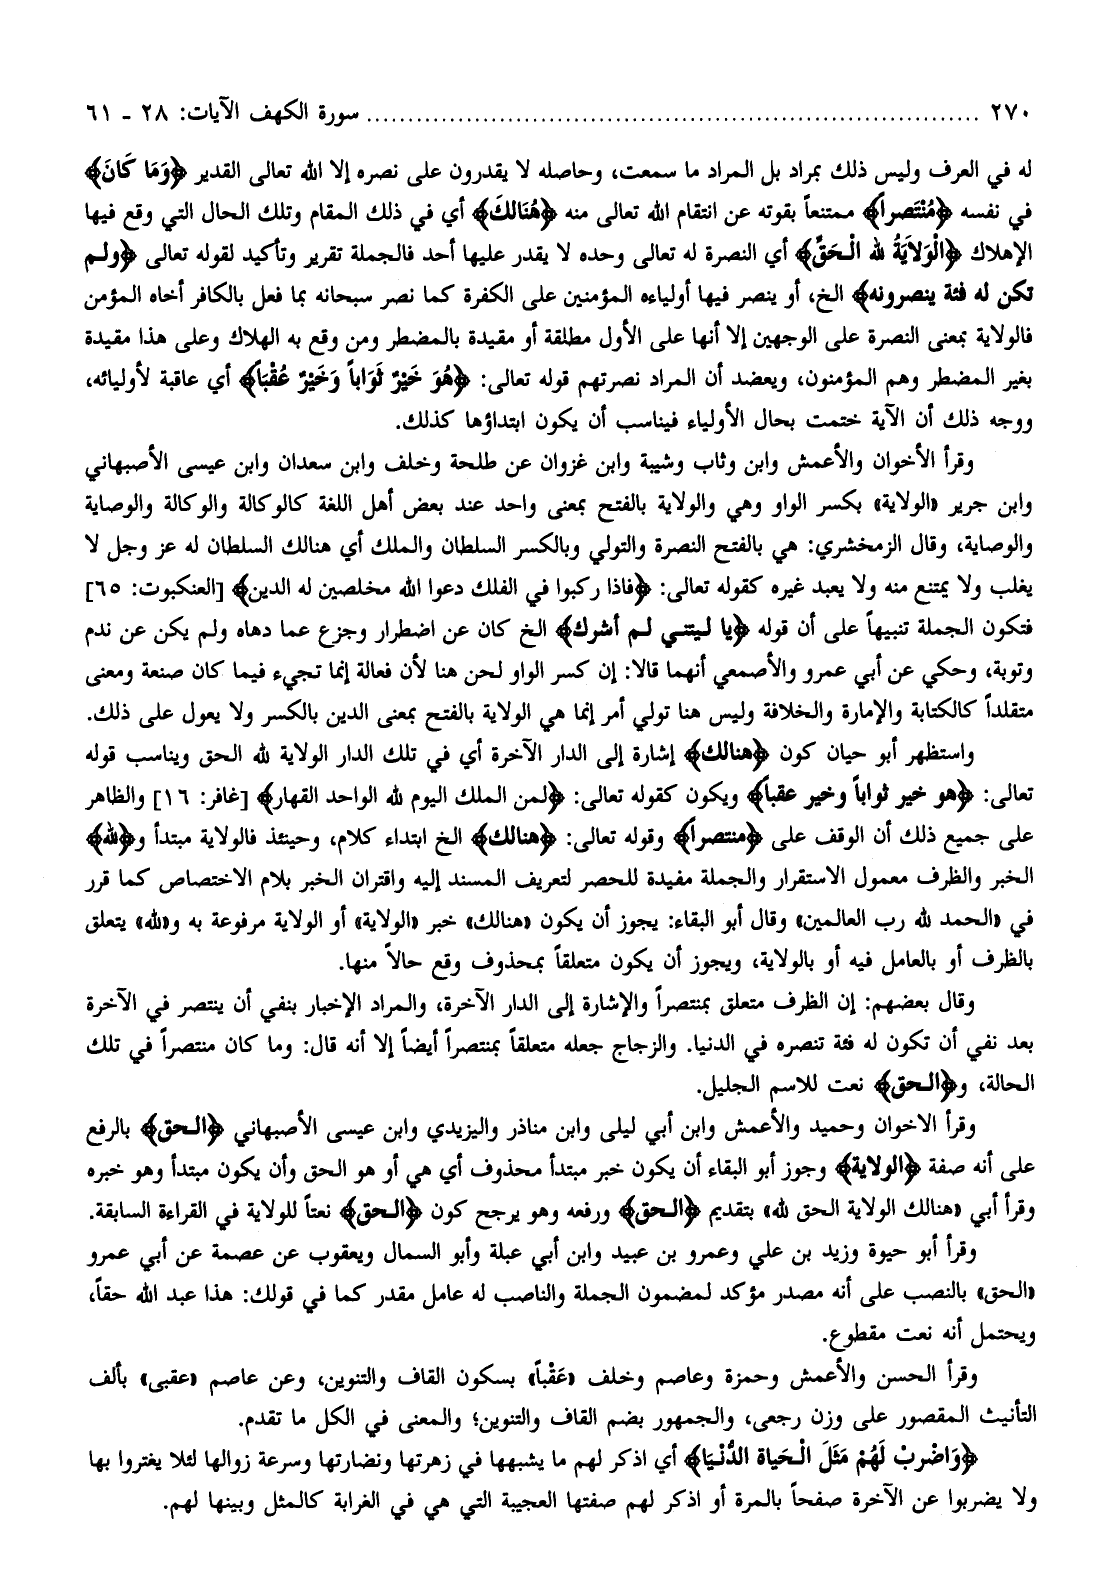 ٢٧٠ ........................................................................ سورة الكهف الآيات: ٢٨ - ٦١
له في العرف وليس ذلك بمراد بل المراد ما سمعت، وحاصله لا يقدرون على نصره إلا الله تعالى القدير ﴿وَمَا كَانَ﴾
في نفسه ﴿مُنْتَصراً﴾ ممتنعاً بقوته عن انتقام الله تعالى منه ﴿هُنَالكَ﴾ أي في ذلك المقام وتلك الحال التي وقع فيها
الإهلاك ﴿الْوَلاَيَةُ لله الْحَقِّ﴾ أي النصرة له تعالى وحده لا يقدر عليها أحد فالجملة تقرير وتأكيد لقوله تعالى ﴿ولم
تكن له فئة ينصرونه﴾ الخ، أو ينصر فيها أولياءه المؤمنين على الكفرة كما نصر سبحانه بما فعل بالكافر أخاه المؤمن
فالولاية بمعنى النصرة على الوجهين إلا أنها على الأول مطلقة أو مقيدة بالمضطر ومن وقع به الهلاك وعلى هذا مقيدة
بغير المضطر وهم المؤمنون، ويعضد أن المراد نصرتهم قوله تعالى: ﴿هُوَ خَيْرٌ ثَوَاباً وَخَيْرٌ عُقْبَاً﴾ أي عاقبة لأوليائه،
ووجه ذلك أن الآية ختمت بحال الأولياء فيناسب أن يكون ابتداؤها كذلك.
وقرأ الأخوان والأعمش وابن وثاب وشيبة وابن غزوان عن طلحة وخلف وابن سعدان وابن عيسى الأصبهاني
وابن جرير «الولاية» بكسر الواو وهي والولاية بالفتح بمعنى واحد عند بعض أهل اللغة كالوكالة والوكالة والوصاية
والوصاية، وقال الزمخشري: هي بالفتح النصرة والتولي وبالكسر السلطان والملك أي هنالك السلطان له عز وجل لا
يغلب ولا يمتنع منه ولا يعبد غيره كقوله تعالى: ﴿فاذا ركبوا في الفلك دعوا الله مخلصين له الدين﴾ [العنكبوت: ٦٥]
فتكون الجملة تنبيهاً على أن قوله ﴿يا ليتني لم أشرك﴾ الخ كان عن اضطرار وجزع عما دهاه ولم يكن عن ندم
وتوبة، وحكي عن أبي عمرو والأصمعي أنهما قالا: إن كسر الواو لحن هنا لأن فعالة إنما تجيء فيما كان صنعة ومعنى
متقلداً كالكتابة والإمارة والخلافة وليس هنا تولي أمر إنما هي الولاية بالفتح بمعنى الدين بالكسر ولا يعول على ذلك.
واستظهر أبو حيان كون ﴿هنالك﴾ إشارة إلى الدار الآخرة أي في تلك الدار الولاية لله الحق ويناسب قوله
تعالى: ﴿هو خير ثواباً وخير عقباً﴾ ويكون كقوله تعالى: ﴿لمن الملك اليوم لله الواحد القهار﴾ [غافر: ١٦] والظاهر
على جميع ذلك أن الوقف على ﴿منتصراً﴾ وقوله تعالى: ﴿هنالك﴾ الخ ابتداء كلام، وحينئذ فالولاية مبتدأ و﴿لله﴾
الخبر والظرف معمول الاستقرار والجملة مفيدة للحصر لتعريف المسند إليه واقتران الخبر بلام الاختصاص كما قرر
في «الحمد لله رب العالمين» وقال أبو البقاء: يجوز أن يكون «هنالك» خبر «الولاية» أو الولاية مرفوعة به و«لله» يتعلق
بالظرف أو بالعامل فيه أو بالولاية، ويجوز أن يكون متعلقاً بمحذوف وقع حالاً منها.
وقال بعضهم: إن الظرف متعلق بمنتصراً والإشارة إلى الدار الآخرة، والمراد الإخبار بنفي أن ينتصر في الآخرة
بعد نفي أن تكون له فئة تنصره في الدنيا. والزجاج جعله متعلقاً بمنتصراً أيضاً إلا أنه قال: وما كان منتصراً في تلك
الحالة، و﴿الحق﴾ نعت للاسم الجليل.
وقرأ الاخوان وحميد والأعمش وابن أبي ليلى وابن مناذر واليزيدي وابن عيسى الأصبهاني ﴿الحق﴾ بالرفع
على أنه صفة ﴿الولاية﴾ وجوز أبو البقاء أن يكون خبر مبتدأ محذوف أي هي أو هو الحق وأن يكون مبتدأ وهو خبره
وقرأ أبي «هنالك الولاية الحق لله» بتقديم ﴿الحق﴾ ورفعه وهو يرجح كون ﴿الحق﴾ نعتاً للولاية في القراءة السابقة.
وقرأ أبو حيوة وزيد بن علي وعمرو بن عبيد وابن أبي عبلة وأبو السمال ويعقوب عن عصمة عن أبي عمرو
«الحق» بالنصب على أنه مصدر مؤكد لمضمون الجملة والناصب له عامل مقدر كما في قولك: هذا عبد الله حقاً،
ويحتمل أنه نعت مقطوع.
وقرأ الحسن والأعمش وحمزة وعاصم وخلف «عَقْباً» بسكون القاف والتنوين، وعن عاصم «عقبى» بألف
التأنيث المقصور على وزن رجعى، والجمهور بضم القاف والتنوين؛ والمعنى في الكل ما تقدم.
﴿وَاضْربْ لَهُمْ مَثَلَ الْحَيَاة الدُّنْيَا﴾ أي اذكر لهم ما يشبهها في زهرتها ونضارتها وسرعة زوالها لئلا يغتروا بها
ولا يضربوا عن الآخرة صفحاً بالمرة أو اذكر لهم صفتها العجيبة التي هي في الغرابة كالمثل وبينها لهم.